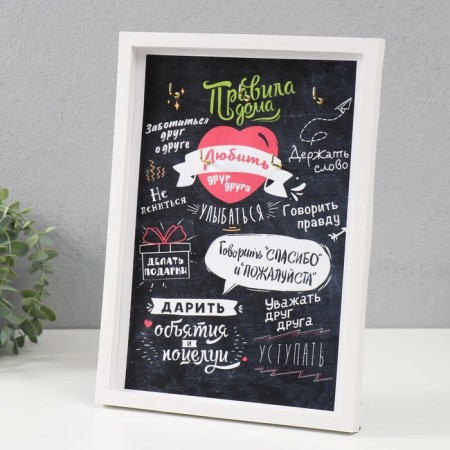 Правила
дома
Заботиться
друг
о друге
Любить
друг
друга
Держать
слово
Не
лениться
УЛЫБАТЬСЯ
Говорить
правду
ДЕЛАТЬ
ПОДАРКИ
Говорить "СПАСИБО"
и "ПОЖАЛУЙСТА"
ДАРИТЬ
объятия
и
поцелуи
Уважать
друг
друга
УСТУПАТЬ